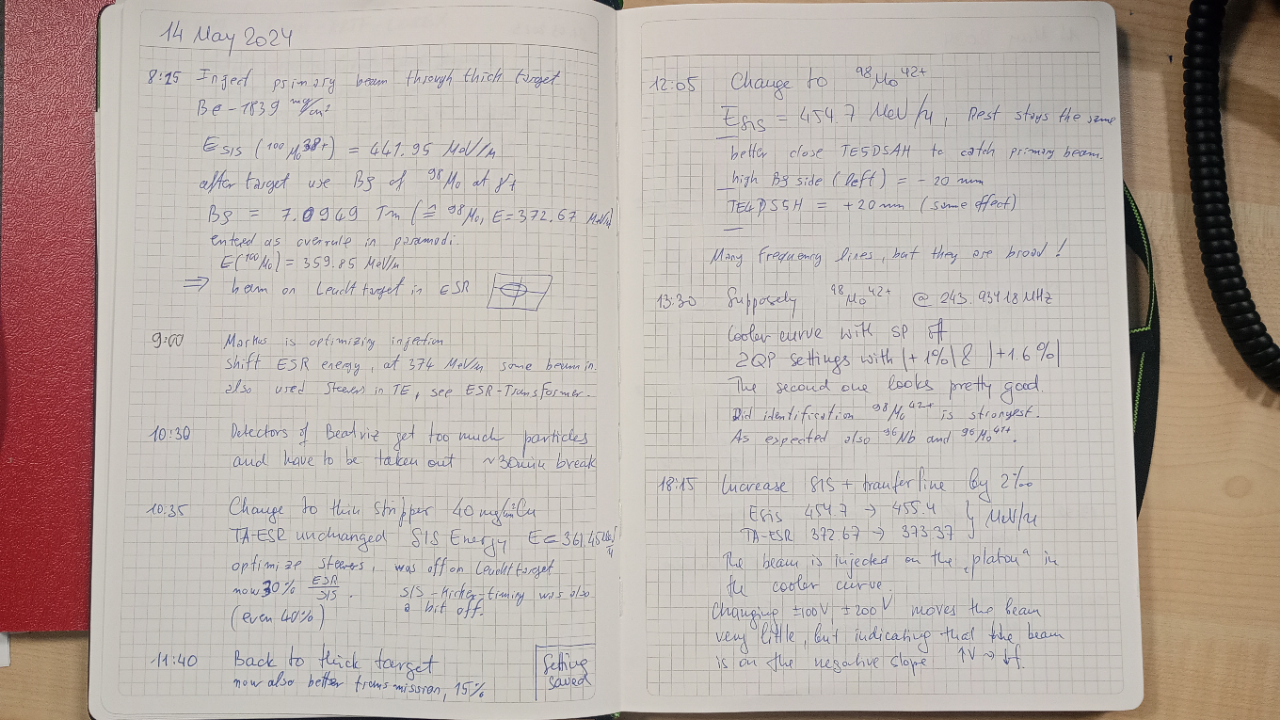 14 May 2024
8:15 Inject primary beam through thick target
Be - 1839 mg/cm²
E_SIS (¹⁰⁰Mo³⁸⁺) = 441.95 MeV/u
after target use Bρ of ⁹⁸Mo at γt
Bρ = 7.0949 Tm (≙ ⁹⁸Mo, E = 372.67 MeV/u)
entered as overrule in paramodi.
E(¹⁰⁰Mo) = 359.85 MeV/u
⇒ beam on Leuchttarget in ESR
9:00 Markus is optimizing injection
shift ESR energy, at 374 MeV/u some beam in.
also used Steerers in TE, see ESR-Transformer.
10:30 Detectors of Beatriz get too much particles
and have to be taken out ~30min break
10:35 Change to thin stripper 40 mg/cm² Cu
TA-ESR unchanged SIS Energy E =
optimize steerers, was off on Leuchttarget
now 30% ESR/SIS. SIS-Kicker-timing was also
(even 40%) a bit off.
11:40 Back to thick target
now also better transmission, 15%
Setting
saved
12:05 Change to ⁹⁸Mo⁴²⁺
E_SIS = 454.7 MeV/u, Rest stays the same
better close TE5DS4H to catch primary beam.
high Bρ side (left) = -20 mm
TE4DS5H = +20 mm (same effect)
Many frequency lines, but they are broad!
13:30 Supposely ⁹⁸Mo⁴²⁺ @ 243.93418 MHz
Cooler curve with SP off
2QP settings with |+1%| & |+1.6%|
The second one looks pretty good.
Did identification ⁹⁸Mo⁴²⁺ is strongest.
As expected also ⁹⁶Nb and ⁹⁶Mo⁴¹⁺.
18:15 Increase SIS + tranferline by 2‰
E_SIS 454.7 → 455.4 } MeV/u
TA-ESR 372.67 → 373.37
The beam is injected on the „platou“ in
the cooler curve.
Changing ±100V, ±200V moves the beam
very little, but indicating that the beam
is on the negative slope ↑V → ↓f.